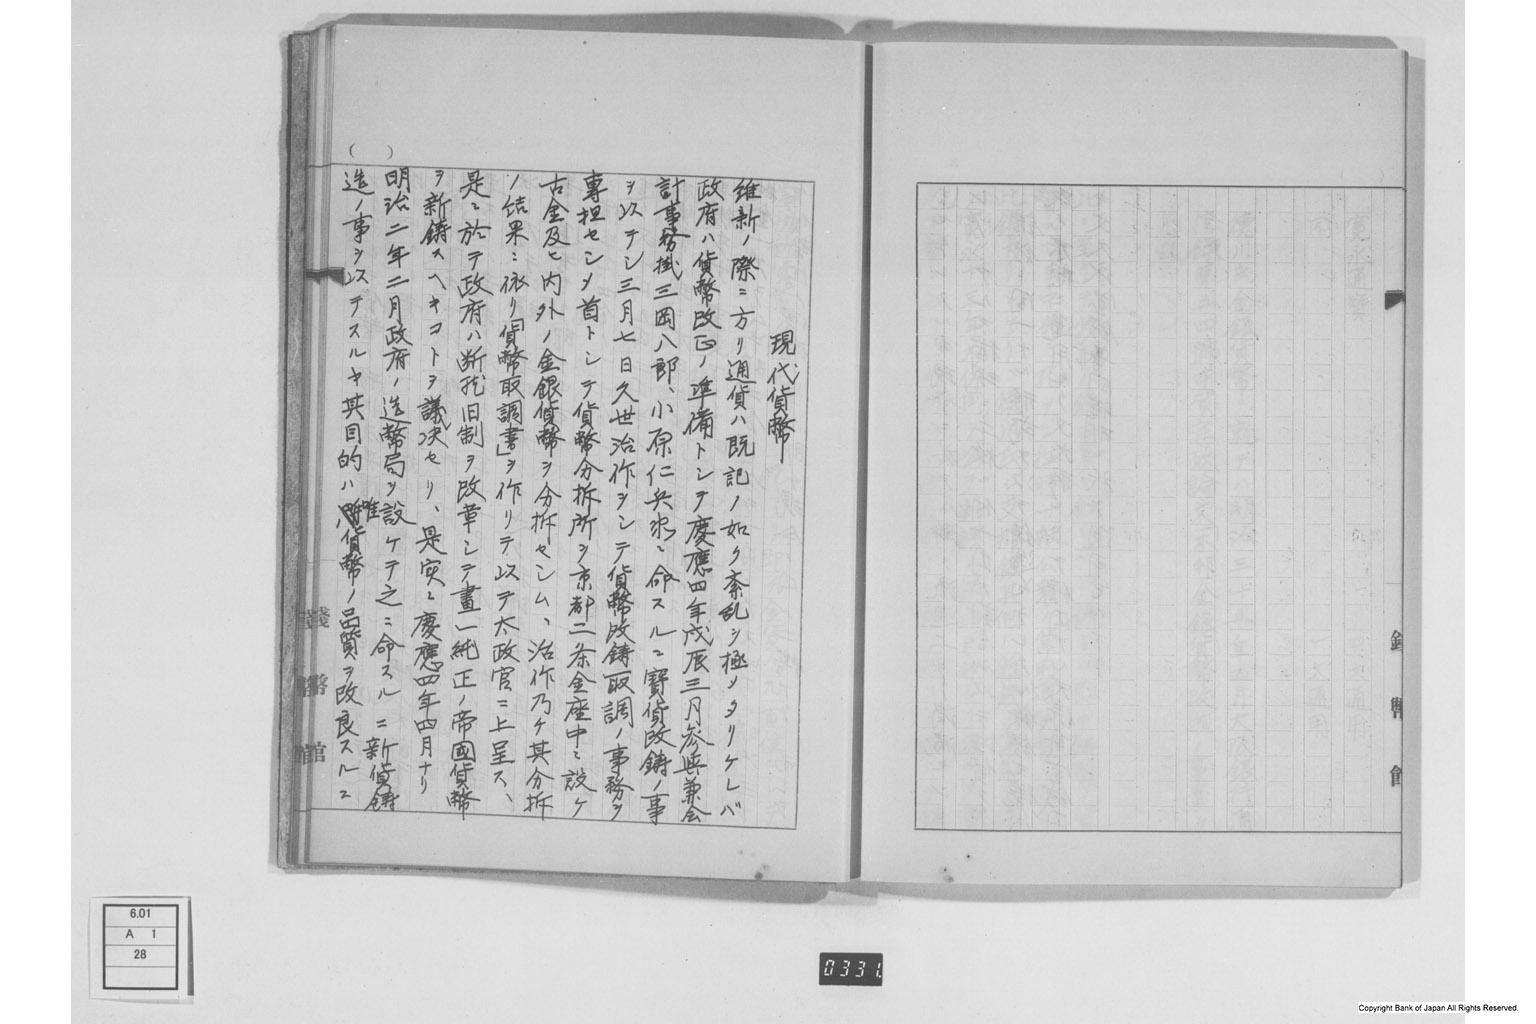 現代貨幣
維新ノ際ニ方リ通貨ハ既記ノ如ク紊乱ヲ極メタリケレバ
政府ハ貨幣改正ノ準備トシテ慶應四年戊辰三月参與兼会
計事務掛三岡八郎、小原仁兵衛ニ命スルニ寶貨改鋳ノ事
ヲ以テシ三月七日久世治作ヲシテ貨幣改鋳取調ノ事務ヲ
専担セシメ首トシテ貨幣分拆所ヲ京都二条金座中ニ設ケ
古金及ヒ内外ノ金銀貨幣ヲ分拆セシム、治作乃ケ其分拆
ノ結果ニ依リ「貨幣取調書」ヲ作リテ以テ太政官ニ上呈ス、
是ニ於テ政府ハ断然旧制ヲ改革シテ畫一純正ノ帝國貨幣
ヲ新鋳スヘキコトヲ議决セリ、是実ニ慶應四年四月ナリ
明治二年二月政府ノ造幣局ヲ設ケテ之ニ命スルニ新貨鋳
造ノ事ヲ以テスルヤ其目的ハ唯貨幣ノ品質ヲ改良スルニ
(　)
錢幣館
錢幣館
6.01
A 1
28
0331
Copyright Bank of Japan All Rights Reserved.